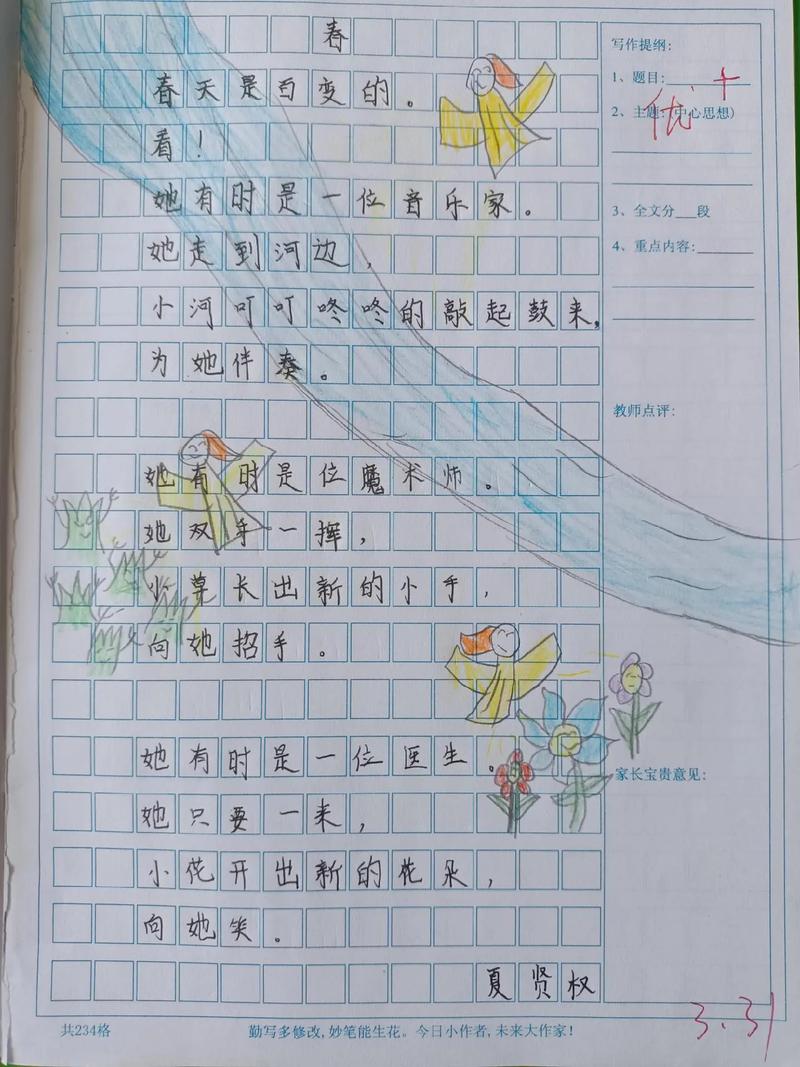 春
春天是百变的。
看!
她有时是一位音乐家。
她走到河边,
小河叮叮咚咚的敲起鼓来,
为她伴奏。
她有时是位魔术师。
她双手一挥,
小草长出新的小手,
向她招手。
她有时是一位医生。
她只要一来,
小花开出新的花朵,
向她笑。
夏贤权
写作提纲:
1、题目:
优+
2、主题:(中心思想)
3、全文分 段
4、重点内容:
教师点评:
家长宝贵意见:
3.31
共234格
勤写多修改,妙笔能生花。今日小作者,未来大作家!